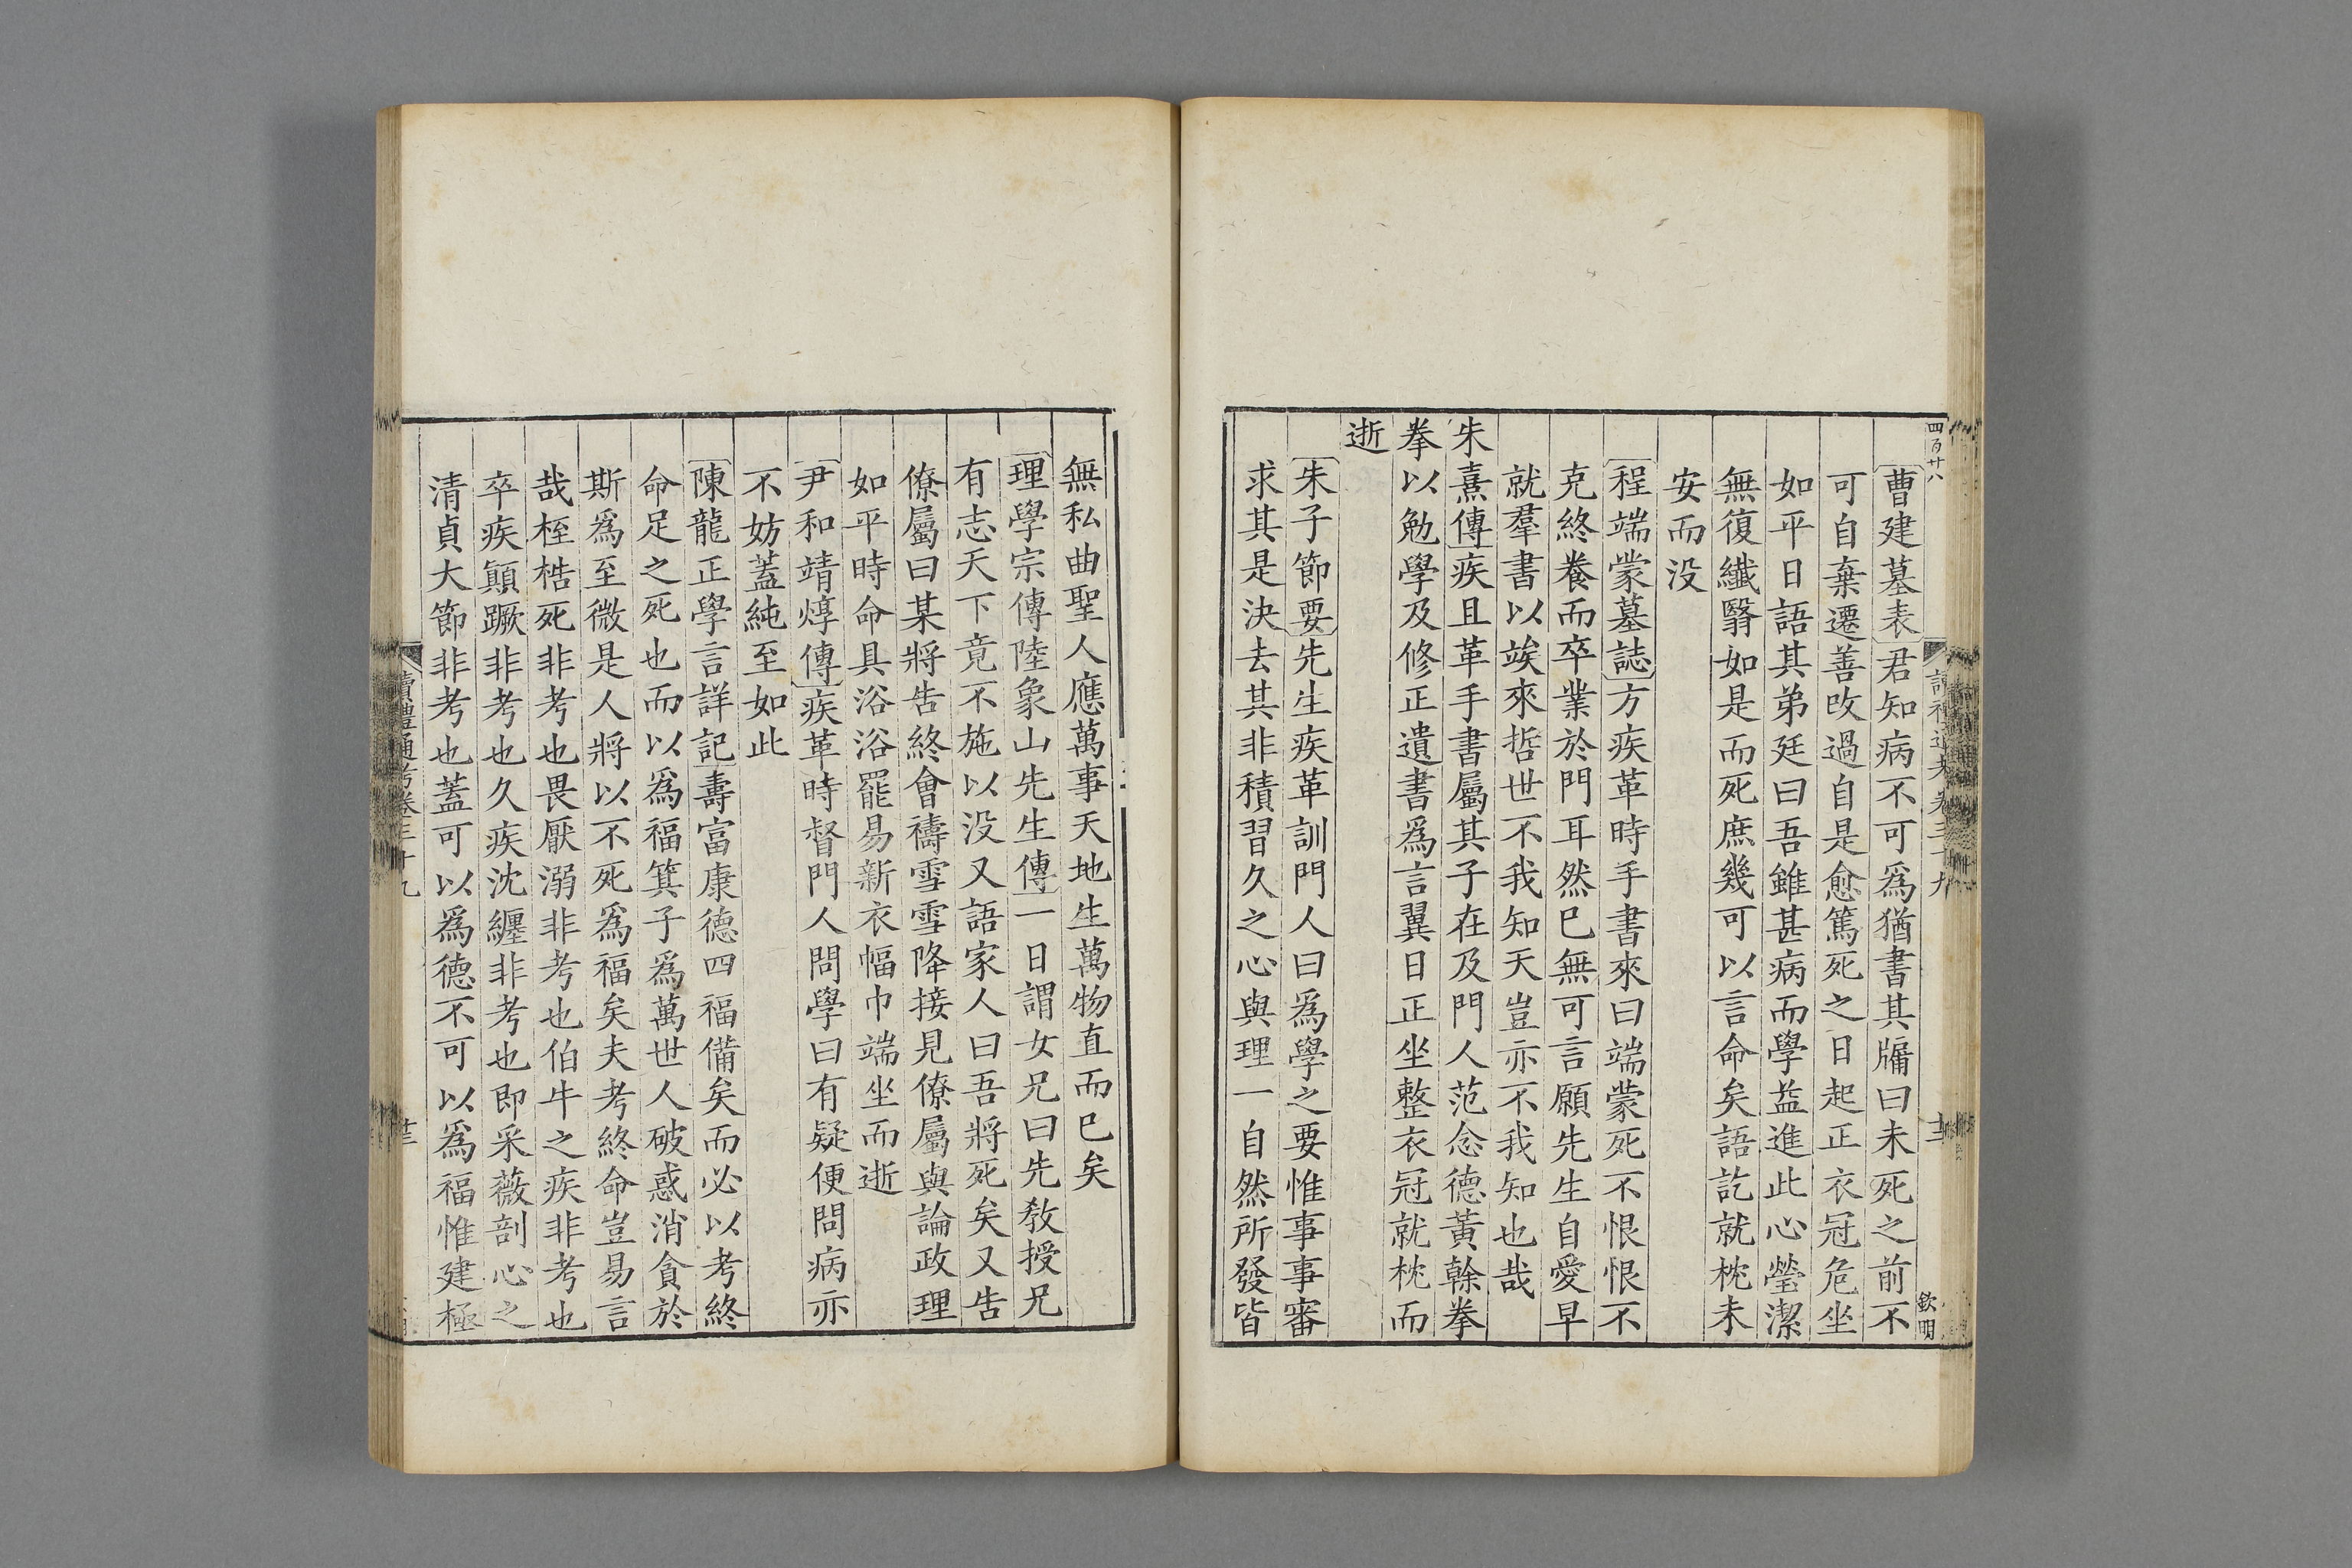 四百廿八
曹建墓表君知病不可爲猶書其牖曰未死之前不
可自棄遷善改過自是愈篤死之日起正衣冠危坐
如平日語其弟廷曰吾雖甚病而學益進此心瑩潔
無復纖翳如是而死庶幾可以言命矣語訖就枕未
安而没
程端蒙墓誌方疾革時手書來曰端蒙死不恨恨不
克終養而卒業於門耳然已無可言願先生自愛早
就羣書以竢來哲世不我知天豈亦不我知也哉
朱熹傳疾且革手書屬其子在及門人范念德黃榦拳
拳以勉學及修正遺書爲言翼日正坐整衣冠就枕而
逝
朱子節要先生疾革訓門人曰爲學之要惟事事審
求其是決去其非積習久之心與理一自然所發皆
欽明
無私曲聖人應萬事天地生萬物直而已矣
理學宗傳陸象山先生傳一日謂女兄曰先教授兄
有志天下竟不施以没又語家人曰吾將死矣又告
僚屬曰某將告終會禱雪雪降接見僚屬與論政理
如平時命具浴浴罷易新衣幅巾端坐而逝
尹和靖焞傳疾革時督門人問學曰有疑便問病亦
不妨蓋純至如此
陳龍正學言詳記壽富康德四福備矣而必以考終
命足之死也而以爲福箕子爲萬世人破惑消貪於
斯爲至微是人將以不死爲福矣夫考終命豈易言
哉桎梏死非考也畏厭溺非考也伯牛之疾非考也
卒疾顚蹶非考也久疾沈纏非考也即采薇剖心之
清貞大節非考也蓋可以爲德不可以爲福惟建極
讀禮通考卷三十九